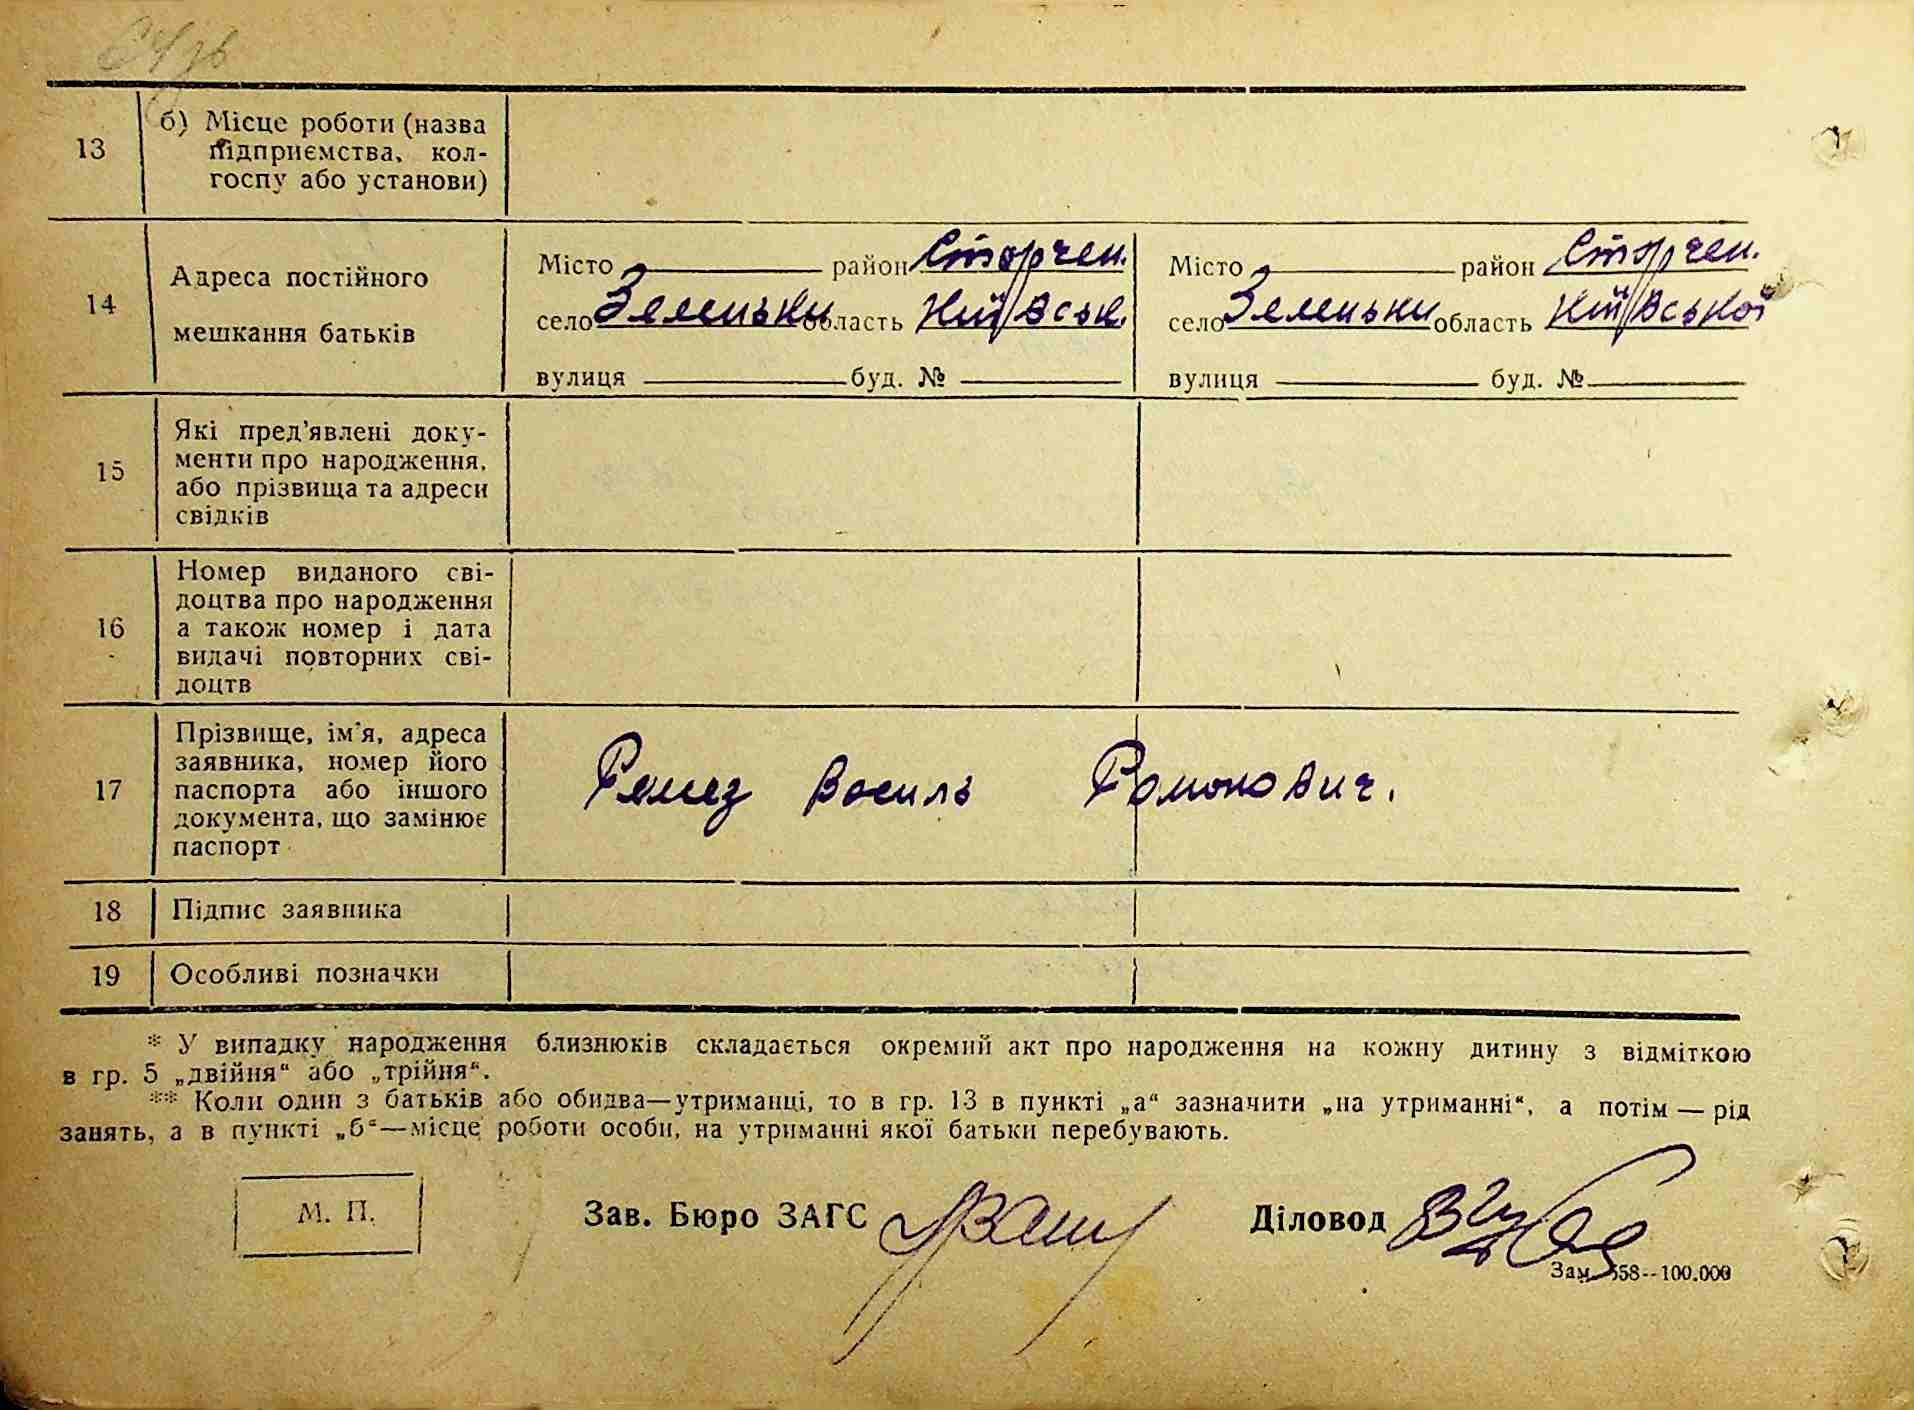 13
б) Місце роботи (назва
підприємства, кол-
госпу або установи)
14
Адреса постійного
мешкання батьків
Місто район Сторчен.
село Зеленьки область Київськ.
вулиця буд. №
Місто район Сторчен.
село Зеленьки область Київської
вулиця буд. №
15
Які пред'явлені доку-
менти про народження,
або прізвища та адреси
свідків
16
Номер виданого сві-
доцтва про народження
а також номер і дата
видачі повторних сві-
доцтв
17
Прізвище, ім'я, адреса
заявника, номер його
паспорта або іншого
документа, що замінює
паспорт
Ремез Василь Романович.
18
Підпис заявника
19
Особливі позначки
* У випадку народження близнюків складається окремий акт про народження на кожну дитину з відміткою
в гр. 5 „двійня“ або „трійня“.
** Коли один з батьків або обидва—утриманці, то в гр. 13 в пункті „а“ зазначити „на утриманні“, а потім — рід
занять, а в пункті „б“—місце роботи особи, на утриманні якої батьки перебувають.
М. П.
Зав. Бюро ЗАГС
Діловод
Зам. 558--100.000